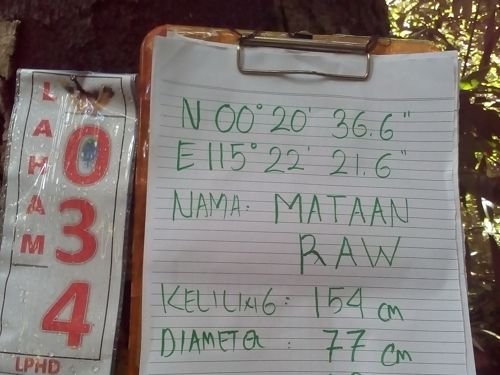 LAHAM
034
LPHD
N 00° 20' 36.6"
E 115° 22' 21.6"
NAMA: MATAAN
RAW
KELILING: 154 cm
DIAMETER : 77 cm